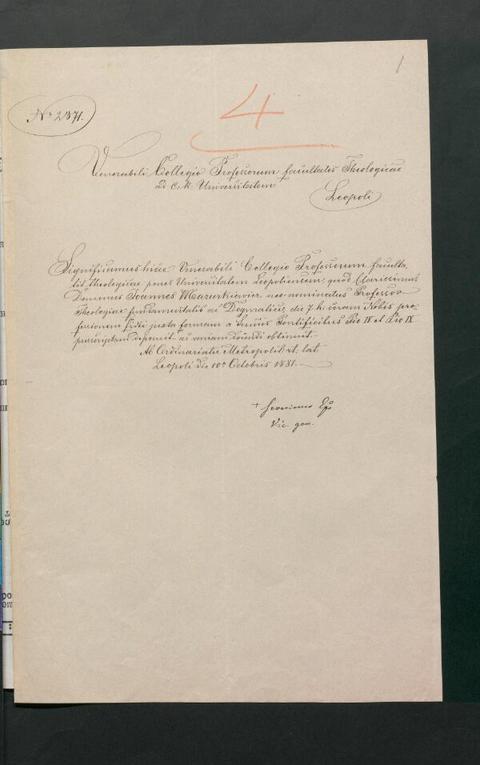 1
No 2371.
4
Venerabili Collegio Professorum facultatis Theologicae
ad C. R. Universitatem
Leopoli
Significamus hisce Venerabili Collegio Professorum faculta-
tis theologicae penes Universitatem Leopoliensem quod Clarissimus
Dominus Joannes Mazurkiewicz neo-nominatus Professor
Theologiae fundamentalis ac Dogmaticae, die 7. h. coram Nobis pro-
fessionem fidei juxta formam a Summis Pontificibus Pio IV et Pio IX
praescriptam deposuit ac
Ab Ordinariatu Metropolit. r. lat.
Leopoli die 10a Octobris 1881.
Vic. gen.